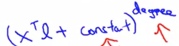 (xᵀl + constant)^degree